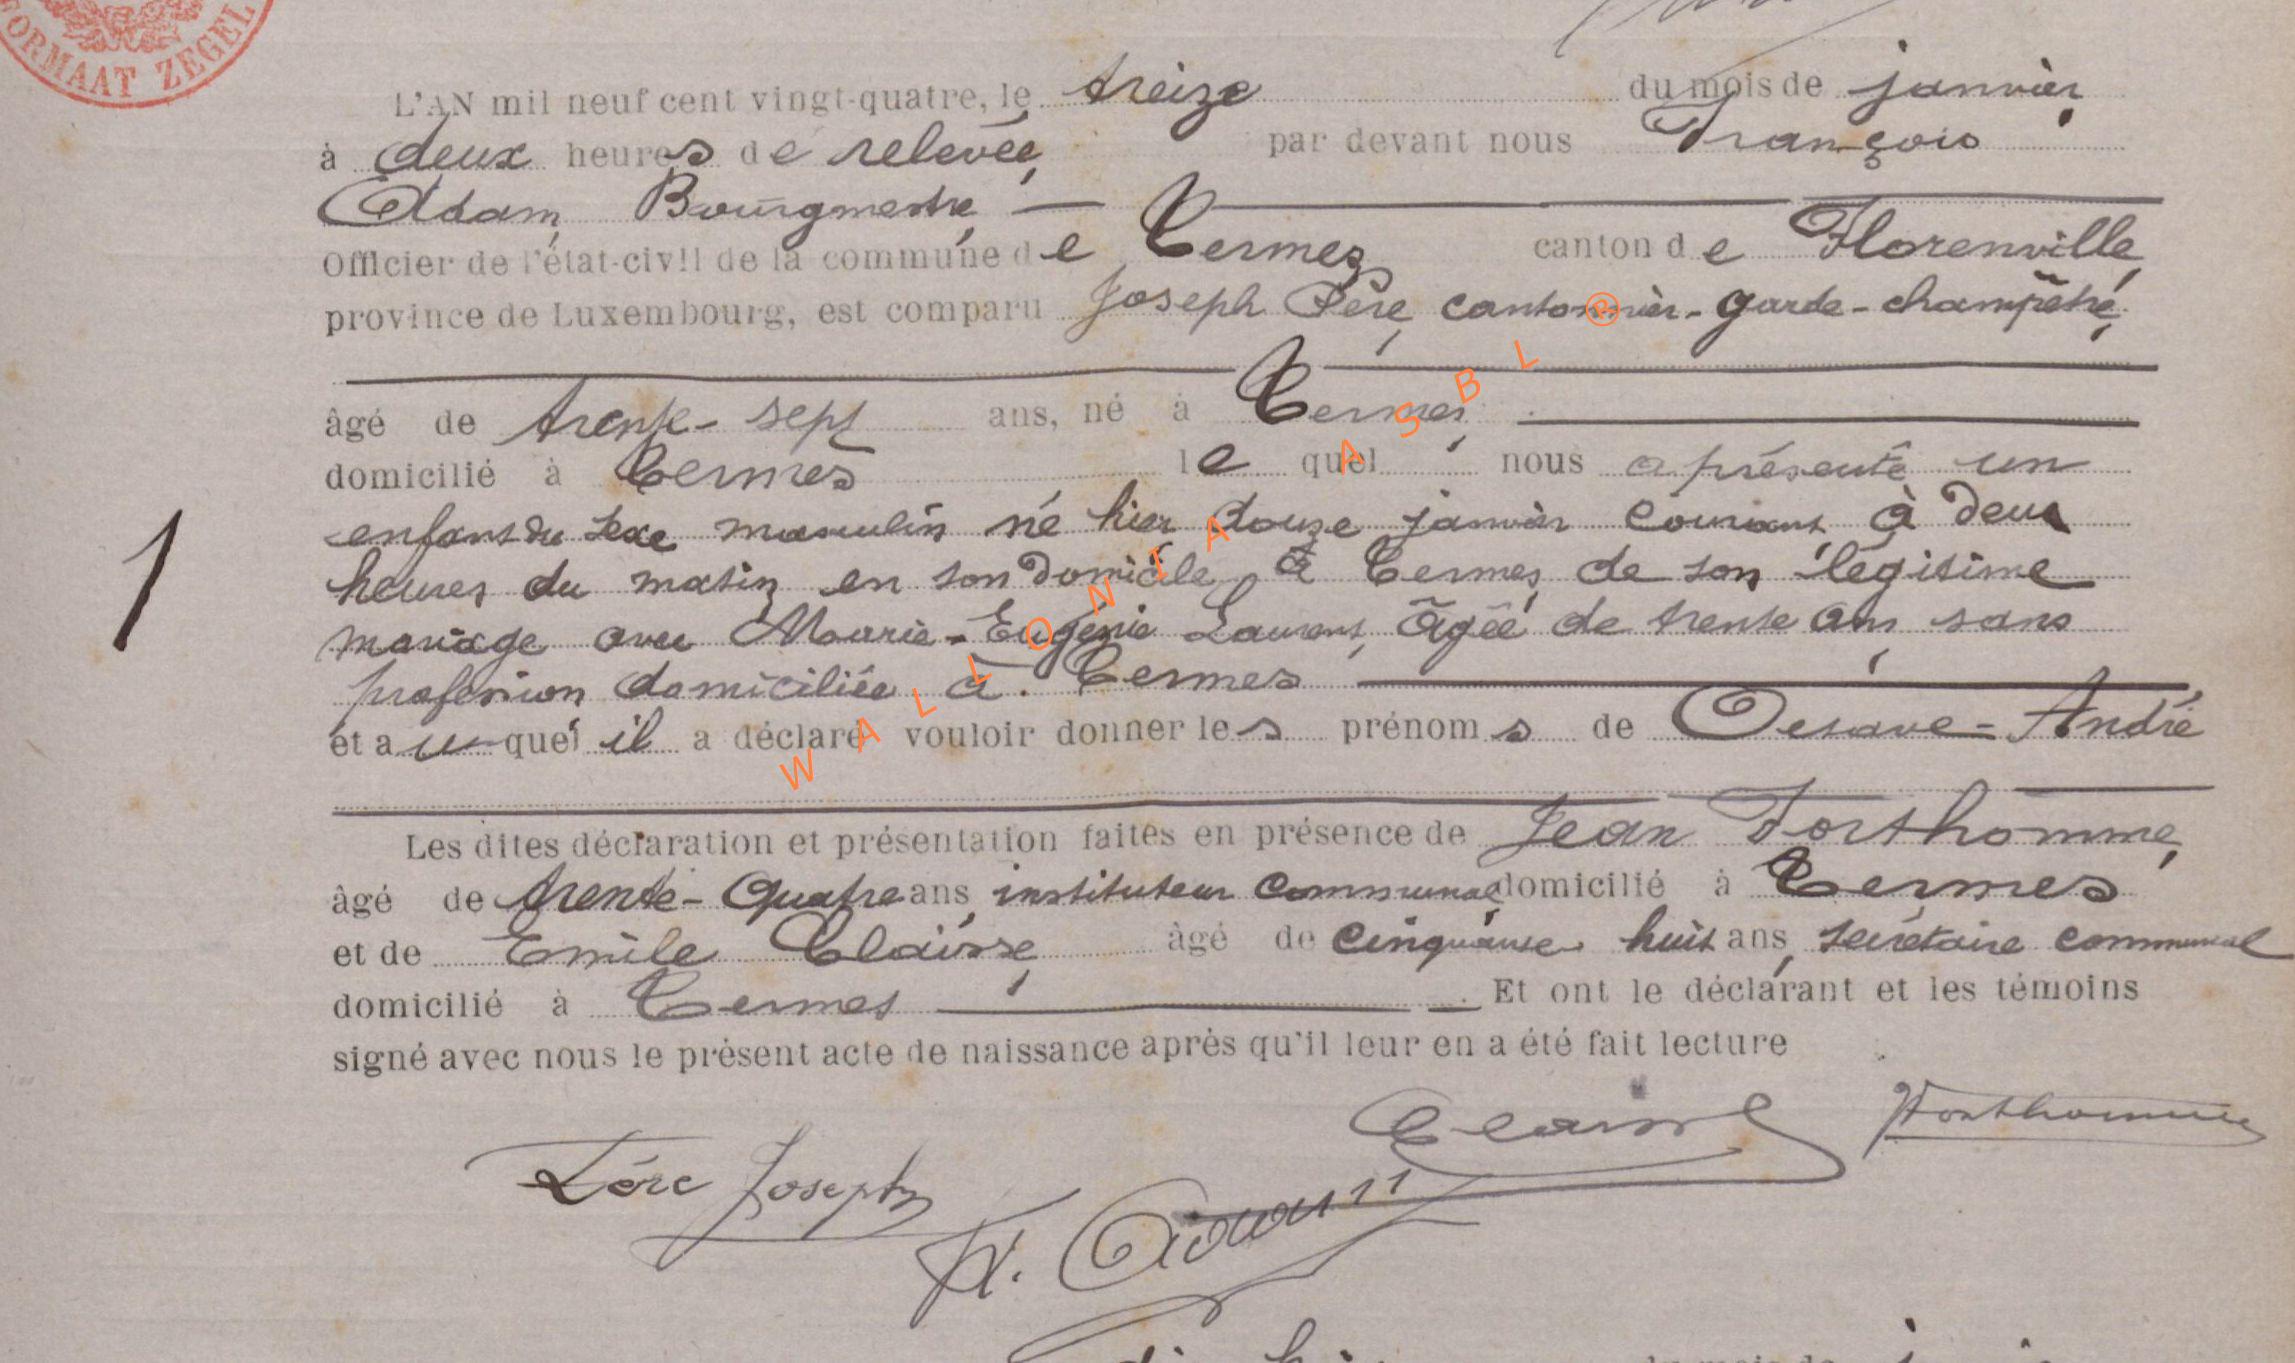 FORMAAT ZEGEL
L'AN mil neuf cent vingt-quatre, le treize du mois de janvier
à deux heures de relevée, par devant nous François
Adam, Bourgmestre,
Officier de l'état-civil de la commune de Termes canton de Florenville,
province de Luxembourg, est comparu Joseph Père, cantonnier-garde-champêtre,
âgé de trente-sept ans, né à Termes,
domicilié à Termes lequel nous a présenté un
enfant du sexe masculin né hier douze janvier courant, à deux
heures du matin en son domicile, à Termes, de son légitime
mariage avec Marie-Eugénie Laurent, âgée de trente ans, sans
profession domiciliée à Termes
et auquel il a déclaré vouloir donner les prénoms de Octave-André
Les dites déclaration et présentation faites en présence de Jean Forthomme,
âgé de trente-quatre ans, instituteur communal, domicilié à Termes
1
et de Emile Claisse, âgé de cinquante huit ans, secrétaire communal
domicilié à Termes. Et ont le déclarant et les témoins
signé avec nous le présent acte de naissance après qu'il leur en a été fait lecture
Claisse Forthomme
Père Joseph
F. Adam
WALLONIA ASBL ®